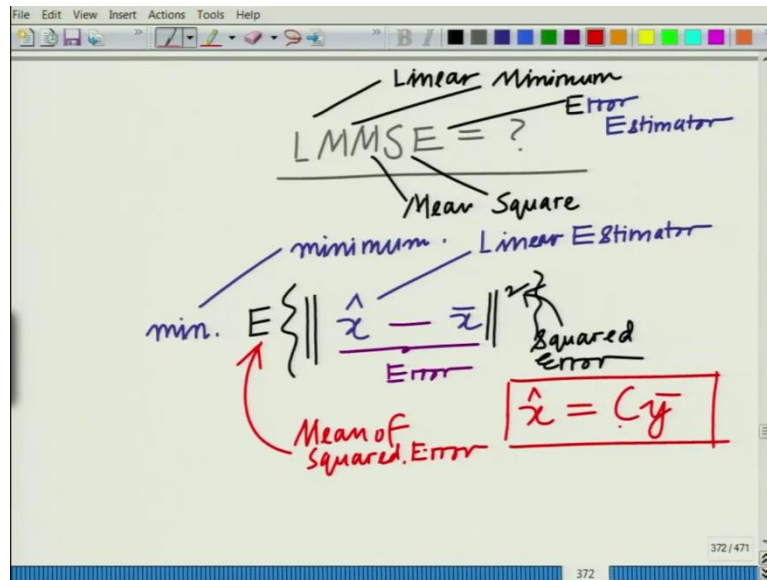 File Edit View Insert Actions Tools Help
B I
Linear Minimum
Error
Estimator
LMMSE = ?
Mean Square
minimum. Linear Estimator
min. E{|| x̂ — x̄ ||²}
Error
Squared
Error
Mean of
Squared Error
x̂ = Cȳ
372/471
372